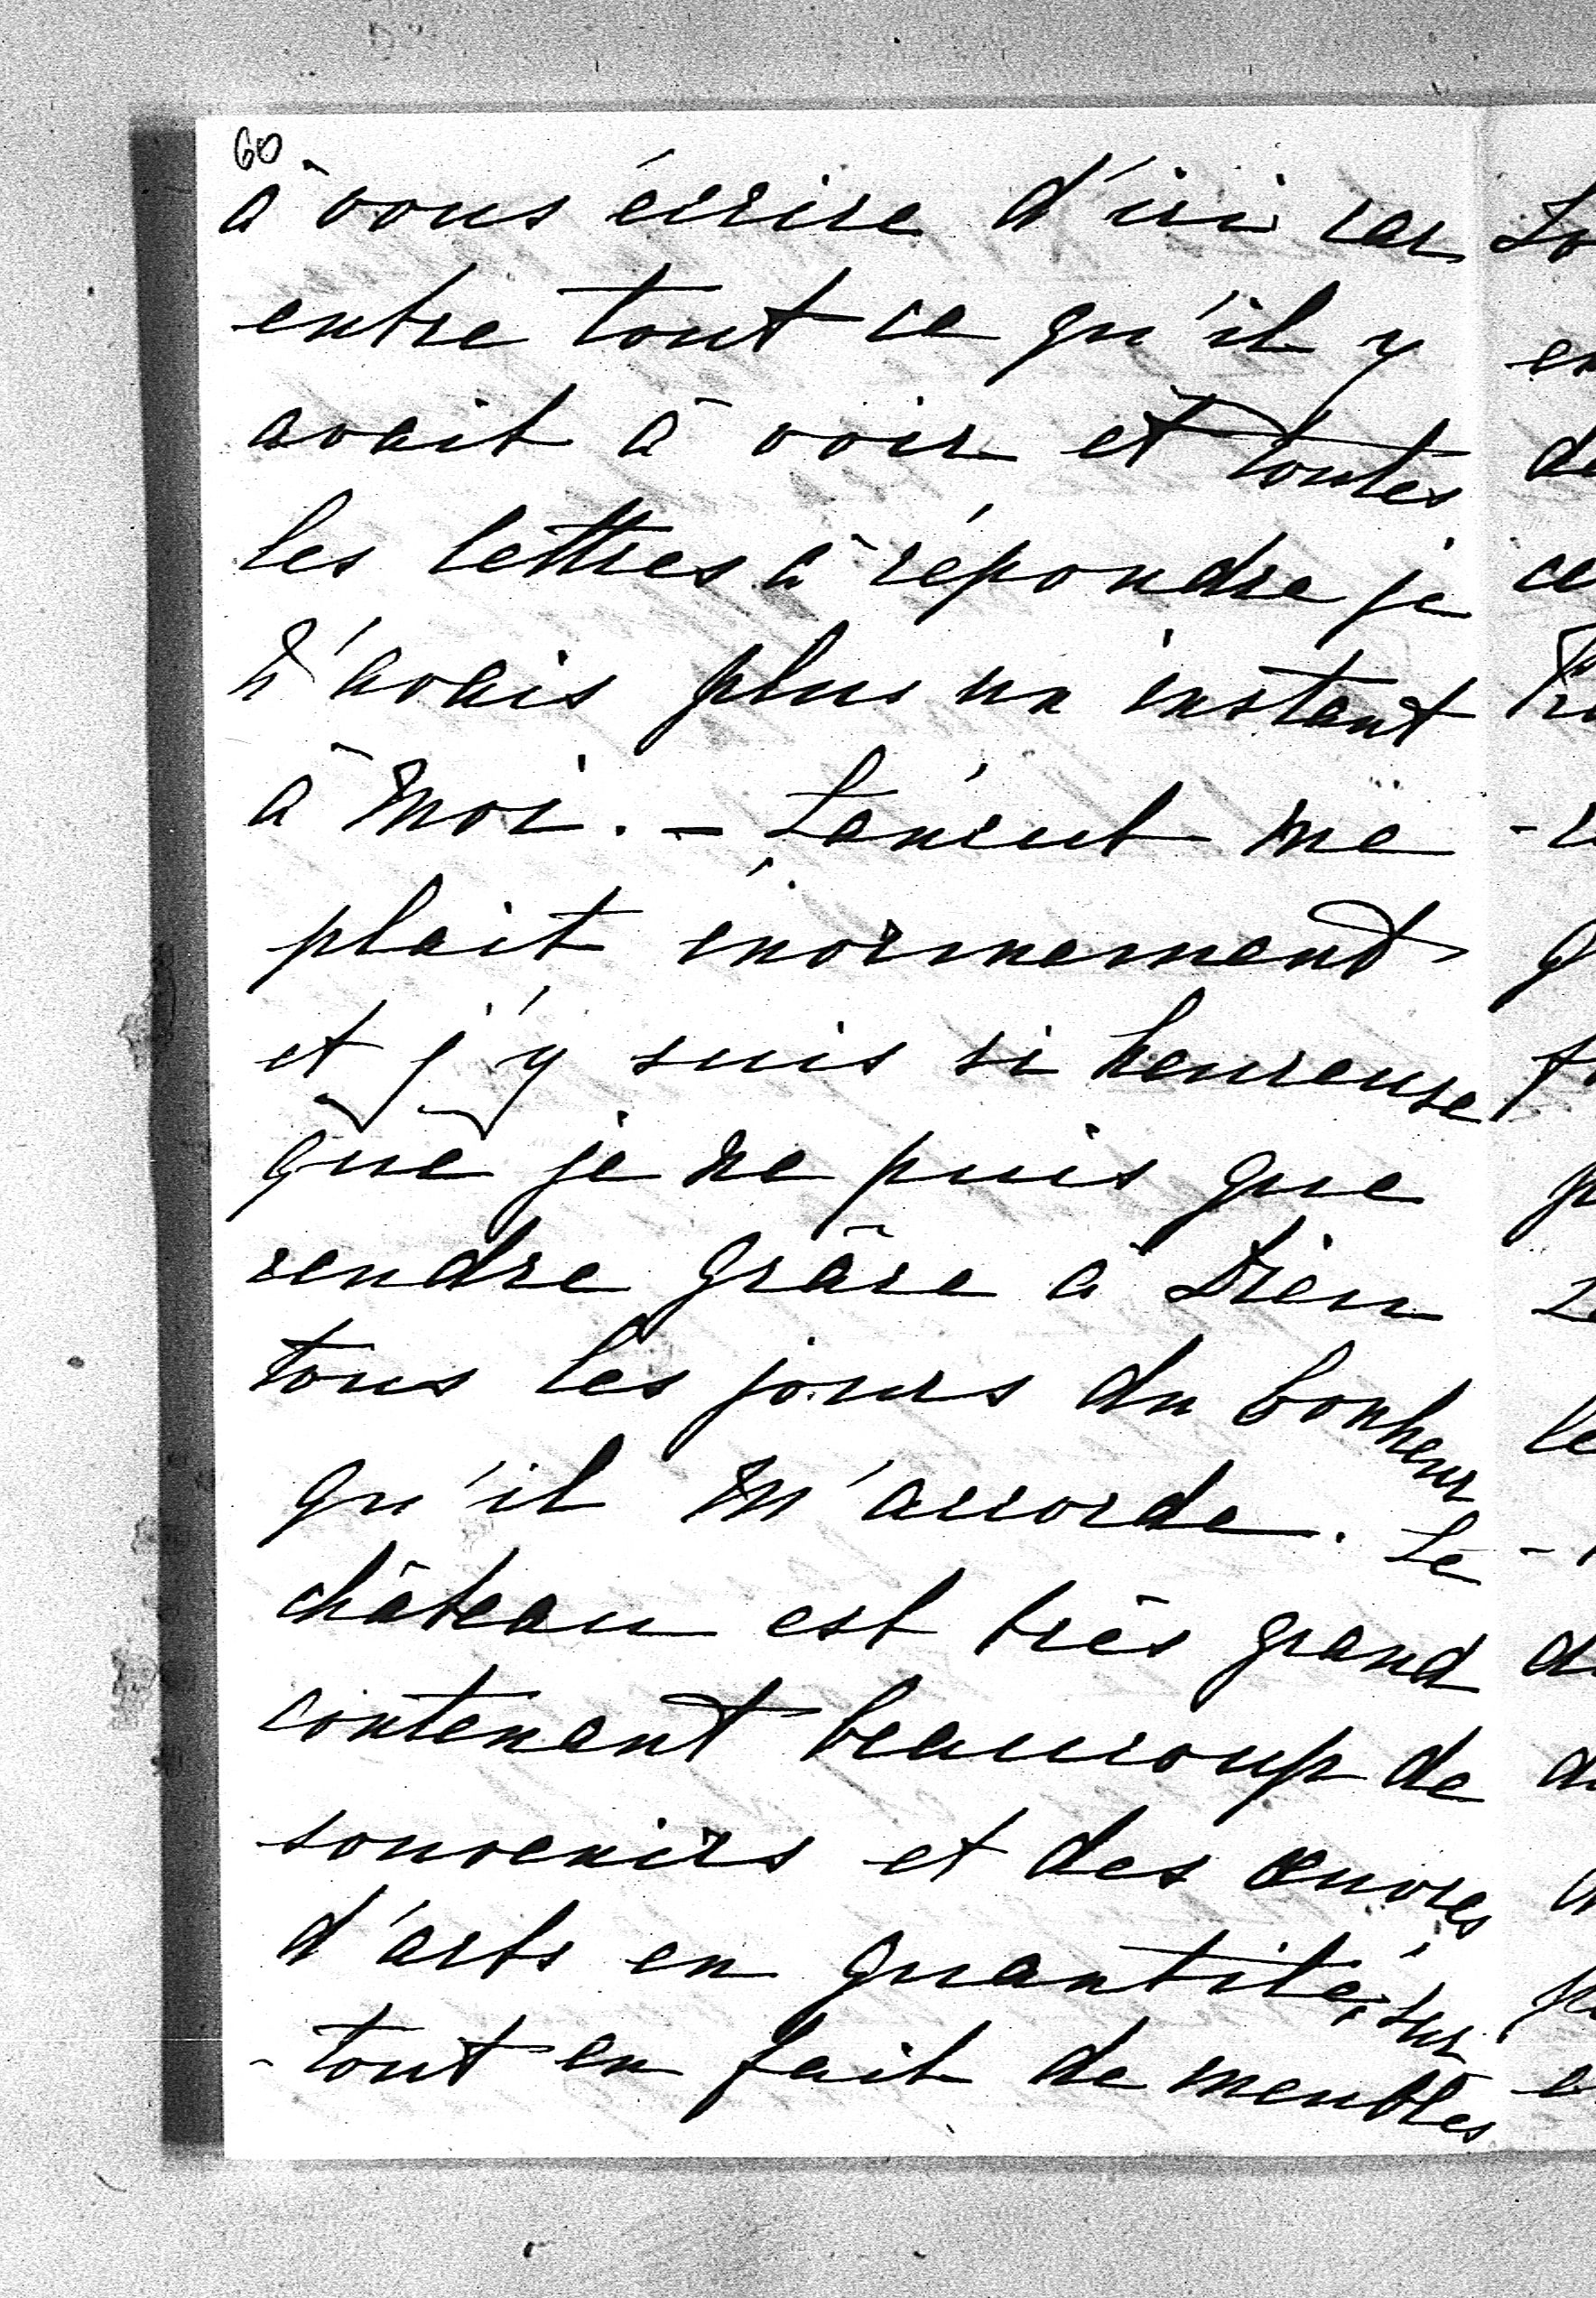 60
à vous écrire d'ici car
entre tout ce qu'il y
avait à voir et toutes
les lettres à répondre je
n'avais plus un instant
à moi. - Łańcut me
plait énormement
et j'y suis si heureuse
que je ne puis que
rendre grâce à Dieu
tous les jours du bonheur
qu'il m'accorde. Le
château est très grand
contenant beaucoup de
souvenirs et des œuvres
d'arts en quantité, sur
-tout en fait de meubles